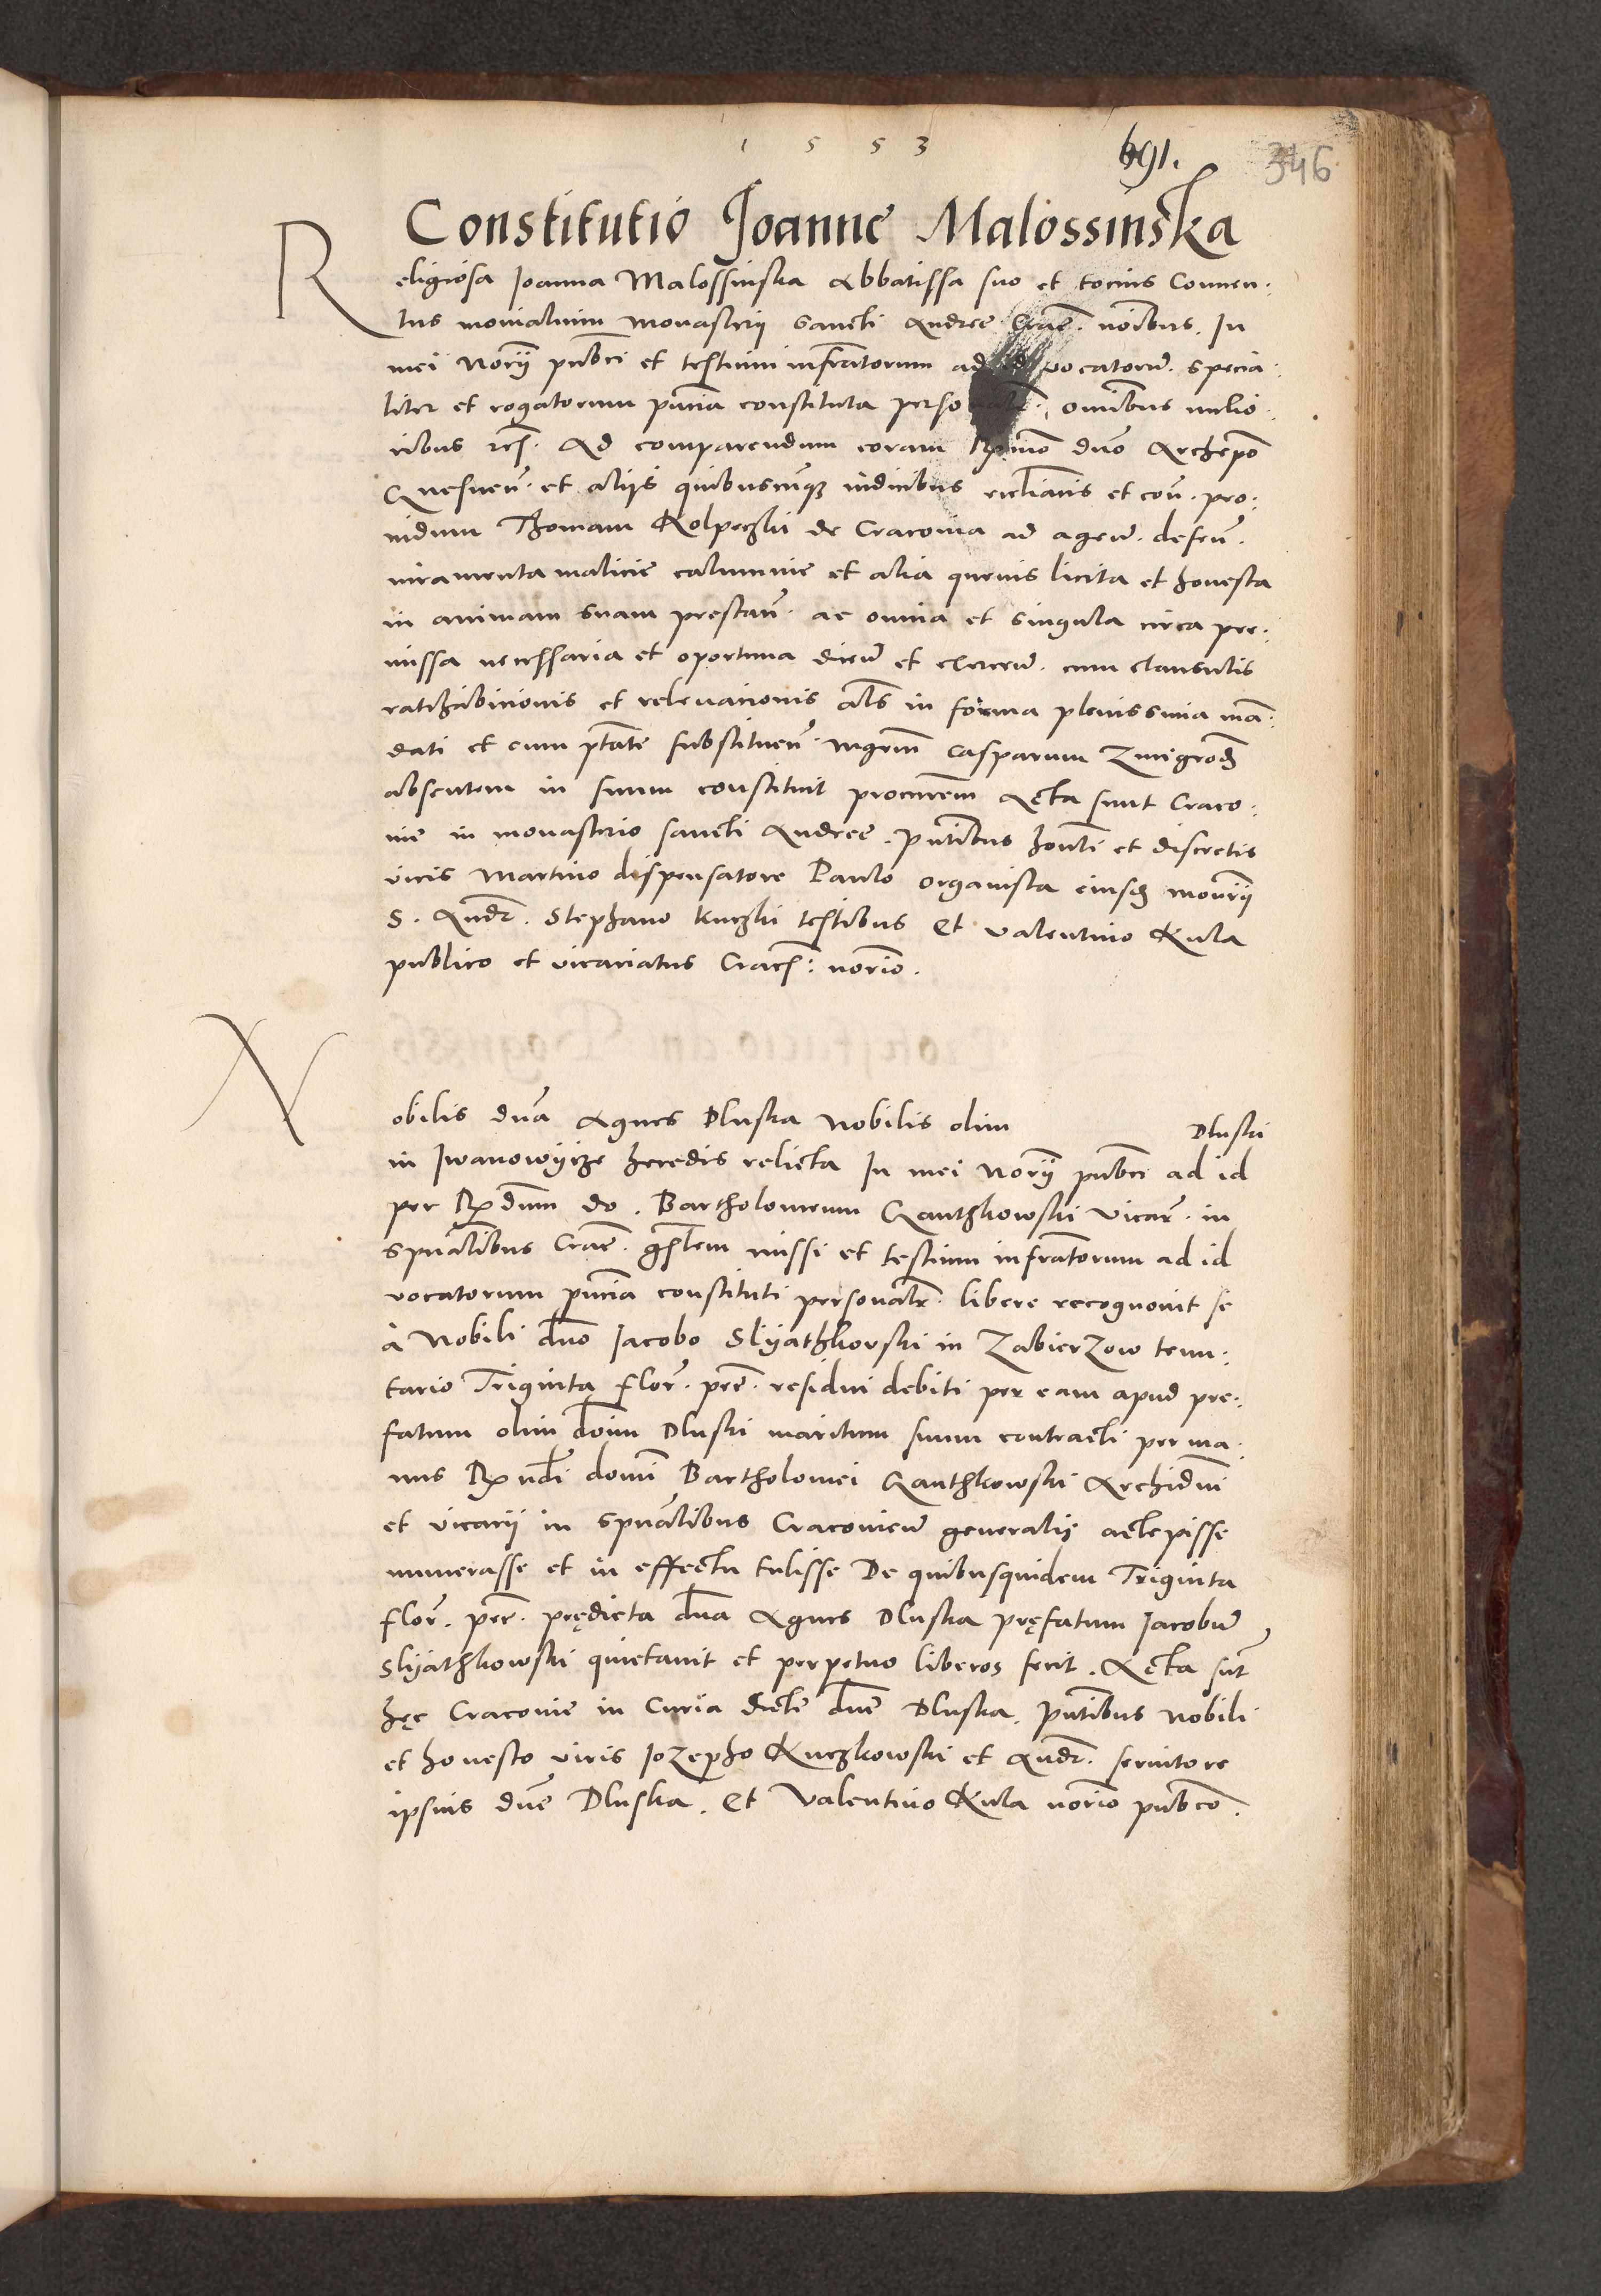 1 5 5 3
691.
346
Constitutio Joanne Malossinska
Religiosa Joanna Malossinska Abbatissa suo et tocius Conuen-
tus monialium monasterij sancti Andree Crac. noibus. In
mei norij pubci et testium infratorum ad id vocatorum specia-
liter et rogatorum pncia constituta perso omnibus melio-
ribus etc. Ad comparendum coram Rmo dno Archepo
Gnesnen. et alijs quibuscunque iudicibus ecclianis et con. pro-
uidum Thomam Kolpeczki de Cracouia ad agen. defen.
iuramenta malicie calumnie et alia queuis licita et honesta
in animam suam prestan. ac omnia et singula circa pre-
missa necessaria et oportuna dicen et exercen. cum clausulis
ratihabicionis et releuacionis als in forma plenissima man-
dati et cum ptate substituen. mgrm Casparum Zmigrod
absentem in suum constituit procurem Acta sunt Craco-
uie in monasterio sancti Andree. pntibus honti et discretis
viris Martino dispensatore Paulo organista eiusd monrij
S. Andr. Stephano kuczki testibus Et Valentino Kula
publico et vicariatus Crac. norio.
Nobilis dna Agnes Dluska Nobilis olim Dluski
in Iwanowijcze heredis relicta In mei norij pubci ad id
per Rdum do. Bartholomeum Ganthkowski vicar. in
spualibus Crac. gnalem missi et testium infratorum ad id
vocatorum pncia constituti personalr. libere recognouit se
à Nobili dno Jacobo Slyathkowski in Zabierzow tenu-
tario Triginta flor. pec. residui debiti per eam apud pre-
fatum olim dom Dluski maritum suum contracti per ma-
nus Rndi domi Bartholomei Ganthkowski Archidni
et vicarij in spualibus Cracouien generalis accepisse
numerasse et in effectu tulisse De quibusquidem Triginta
flor. pec. prędicta dna Agnes Dluska pręfatum Jacobum
Slyathkowski quietauit et perpetuo liberos fecit. Acta sunt
hęc Cracouie in Curia dicte dne Dluska. pntibus Nobili
et honesto viris Jozepho Kuczkowski et Andr. seruitore
ipsius dne Dluska. Et Valentino Kula norio pubco.